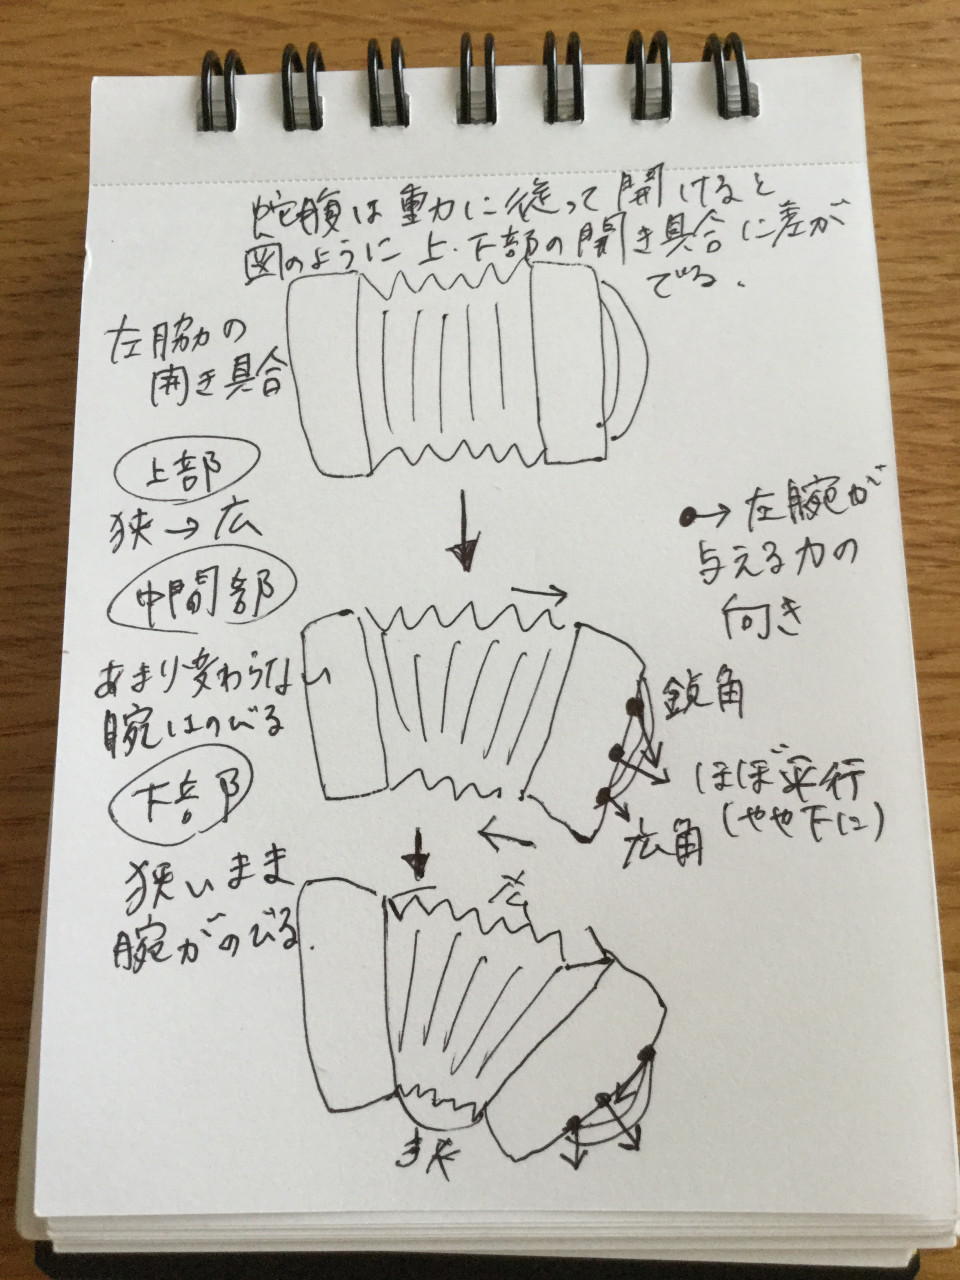 蛇腹は重力に従って開けると
図のように上・下部の開き具合に差が
でる.
左脇の
開き具合
上部
狭→広
中間部
あまり変わらない
腕はのびる
下部
狭いまま
腕がのびる.
●→左腕が
与える力の
向き
鋭角
ほぼ平行
(やや下に)
広角
広
狭